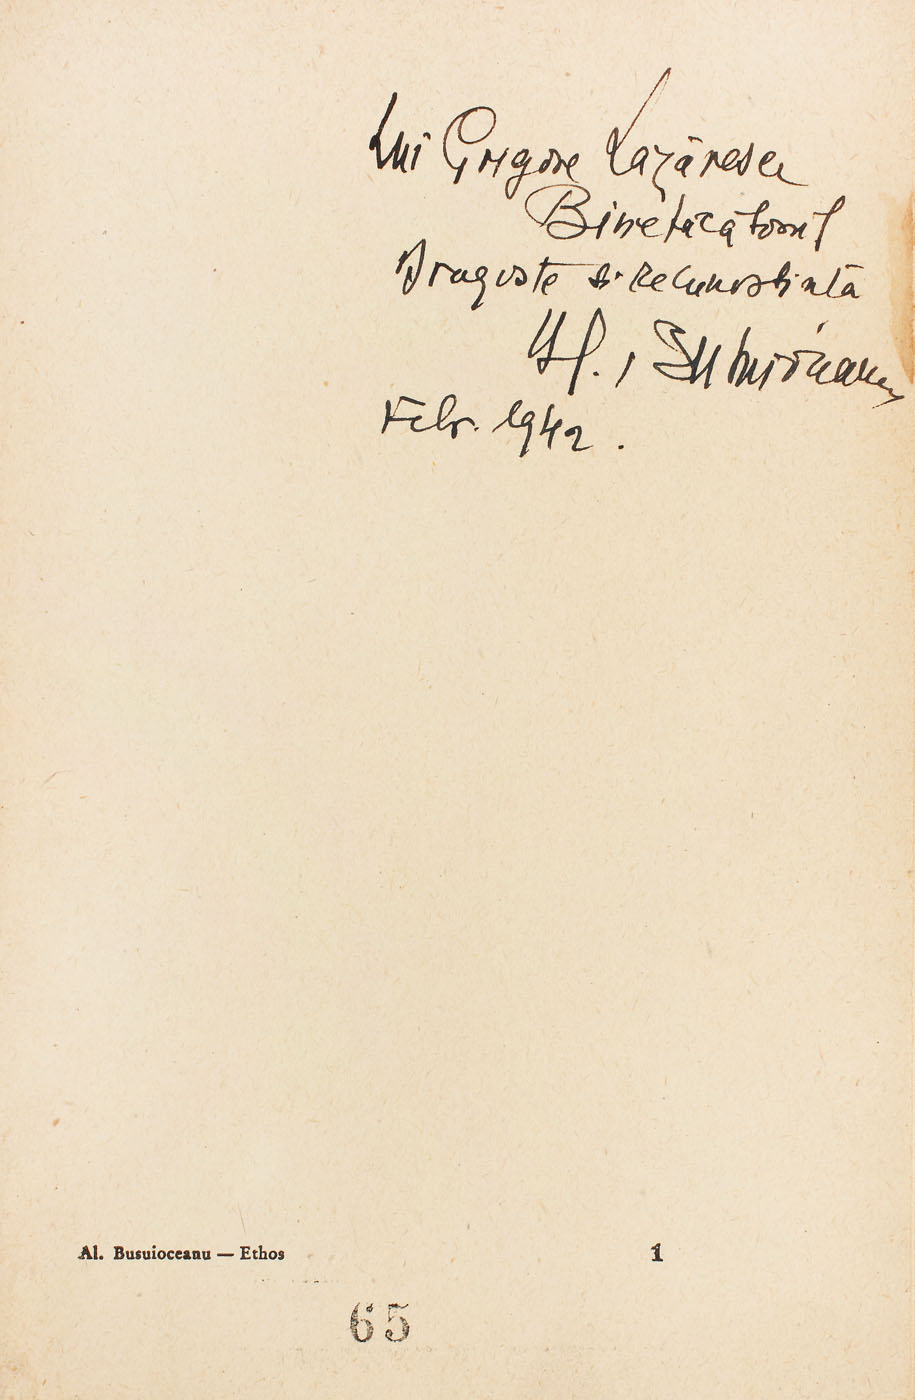 Lui Grigore Lazărescu
Binefăcătorul
Dragoste si Recunostintă
Al. Busuioceanu
Febr. 1942.
Al. Busuioceanu — Ethos 1
65